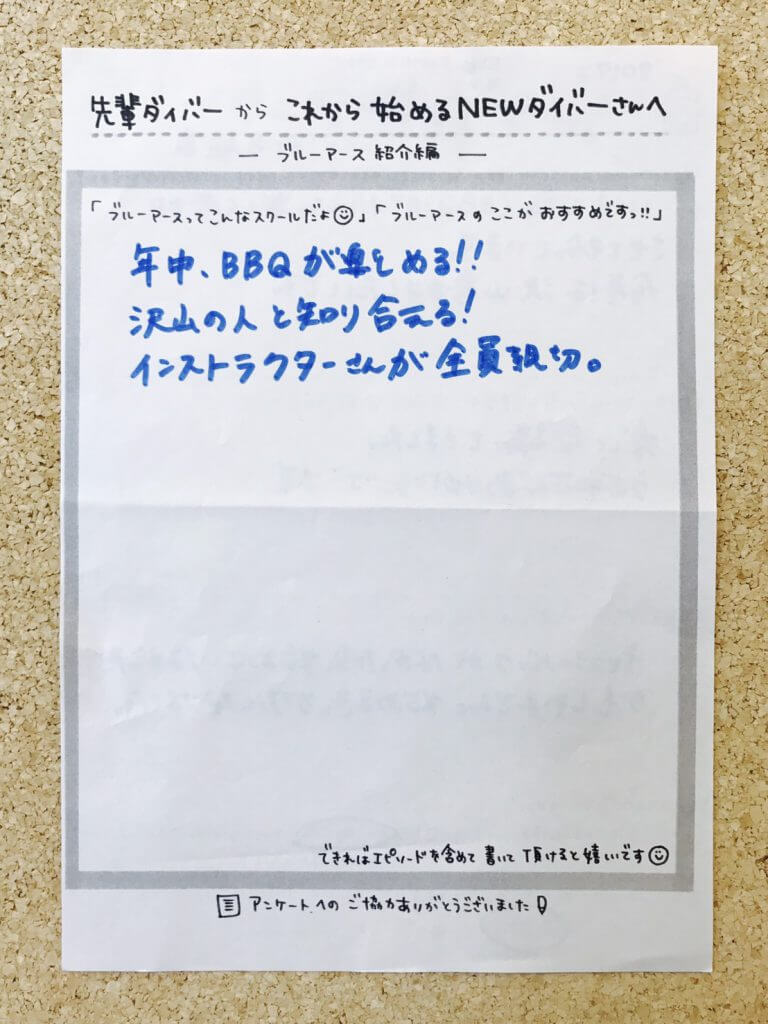 先輩ダイバーから これから始めるNEWダイバーさんへ
― ブルーアース紹介編 ―
「ブルーアースってこんなスクールだよ☺」「ブルーアースのここが おすすめですっ!!」
年中、BBQが楽しめる!!
沢山の人と知り合える!
インストラクターさんが全員親切。
できればエピソードを含めて書いて頂けると嬉しいです☺
アンケートへのご協力ありがとうございました